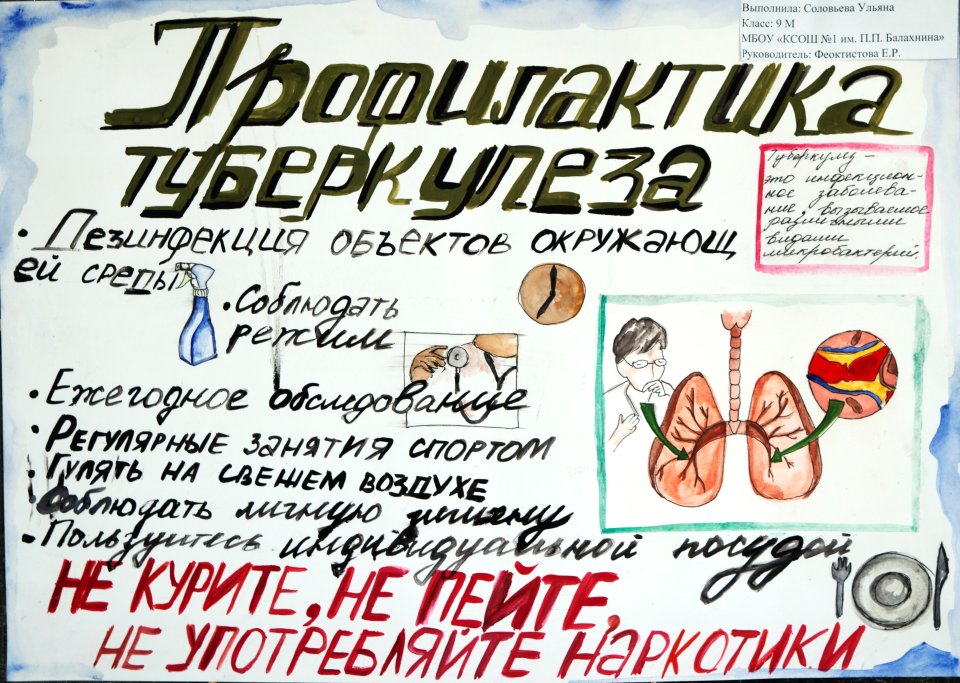 Выполнила: Соловьева Ульяна
Класс: 9 М
МБОУ «КСОШ №1 им. П.П. Балахнина»
Руководитель: Феоктистова Е.Р.
Профилактика
туберкулеза
Туберкулез –
это инфекцион-
ное заболева-
ние, вызываемое
различными
видами
микробактерий.
• Дезинфекция объектов окружающ
ей среды
• Соблюдать
режим
• Ежегодное обследование
• Регулярные занятия спортом
• Гулять на свежем воздухе
• Соблюдать личную гигиену
- Пользуйтесь индивидуальной посудой
НЕ КУРИТЕ, НЕ ПЕЙТЕ,
НЕ УПОТРЕБЛЯЙТЕ НАРКОТИКИ